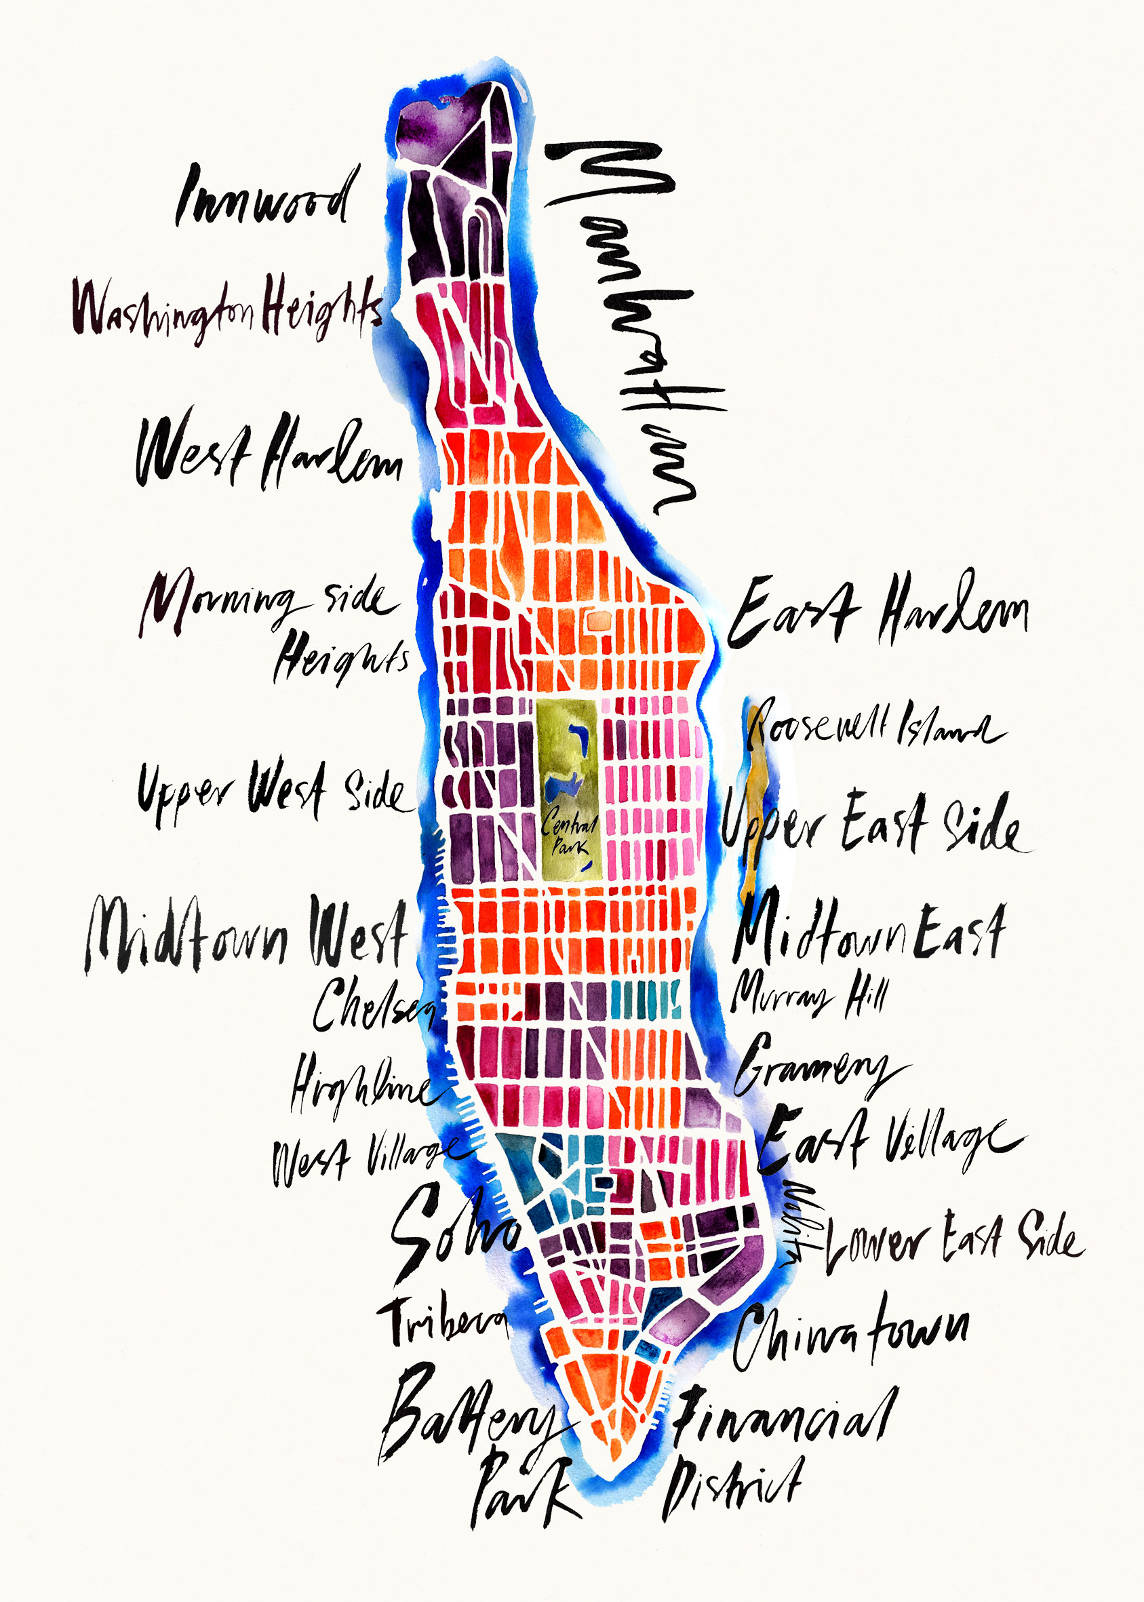 Innwood
Manhattan
Washington Heights
West Harlem
Morning side
Heights
East Harlem
Roosevelt Island
Upper West Side
Central
Park
Upper East Side
Midtown West
Midtown East
Chelsea
Murray Hill
Highline
Gramery
West Village
East Village
Soho
Nolita
Lower East Side
Tribeca
Chinatown
Battery
Park
Financial
District